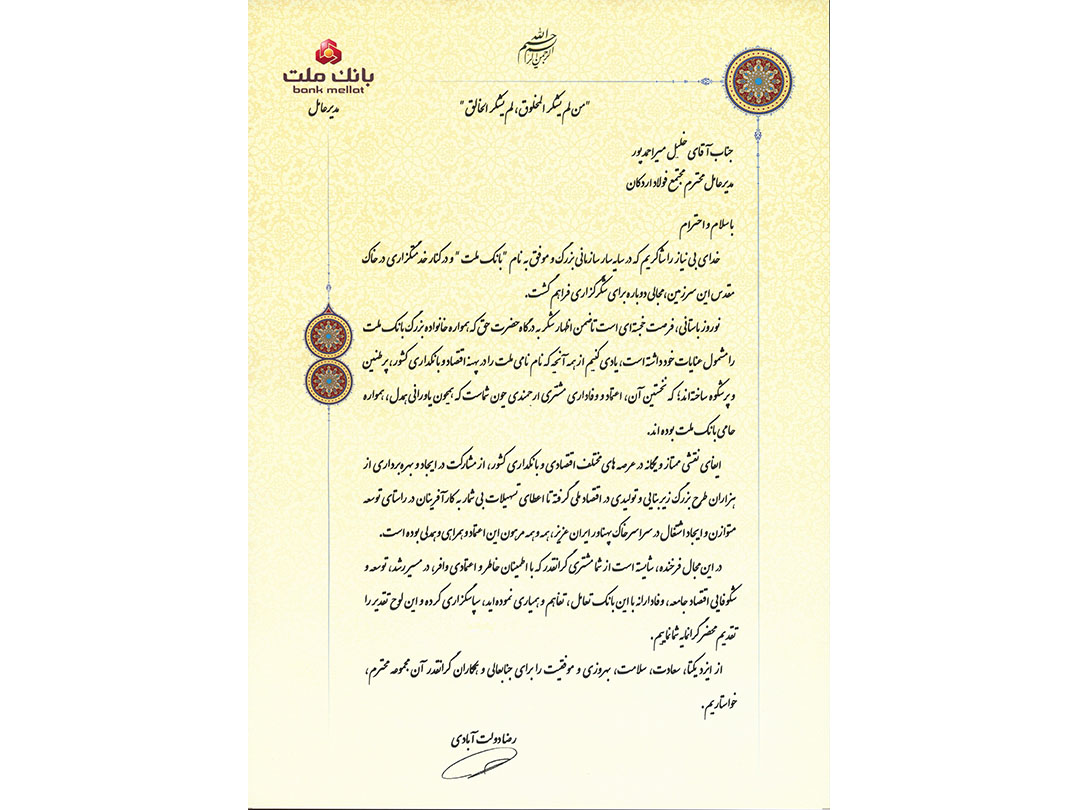 بسم الله الرحمن الرحیم
بانک ملت
bank mellat
مدیرعامل
"من لم یشکر المخلوق، لم یشکر الخالق"
جناب آقای خلیل میراحمدپور
مدیرعامل محترم مجتمع فولاد اردکان
باسلام و احترام
خدای بی نیاز را شاکریم که در سایه سار سازمانی بزرگ و موفق به نام "بانک ملت" و در کنار خدمتگزاری در خاک
مقدس این سرزمین، مجالی دوباره برای شکرگزاری فراهم گشت.
نوروز باستانی، فرصت خجسته ای است تا ضمن اظهار شکر به درگاه حضرت حق که همواره خانواده بزرگ بانک ملت
را مشمول عنایات خود داشته است، یادی کنیم از همه آنچه که نام نامی ملت را در پهنه اقتصاد و بانکداری کشور، پرطنین
و پرشکوه ساخته اند؛ که نخستین آن، اعتماد و وفاداری مشتری ارجمندی چون شماست که همچون یاورانی همدل، همواره
حامی بانک ملت بوده اند.
ایفای نقشی ممتاز و یگانه در عرصه های مختلف اقتصادی و بانکداری کشور، از مشارکت در ایجاد و بهره برداری از
هزاران طرح بزرگ زیربنایی و تولیدی در اقتصاد ملی گرفته تا اعطای تسهیلات بی شمار به کارآفرینان در راستای توسعه
متوازن و ایجاد اشتغال در سراسر خاک پهناور ایران عزیز، همه و همه مرهون این اعتماد و همراهی و همدلی بوده است.
در این مجال فرخنده، شایسته است از شما مشتری گرانقدر که با اطمینان خاطر و اعتمادی وافر، در مسیر رشد، توسعه و
شکوفایی اقتصاد جامعه، وفادارانه با این بانک تعامل، تفاهم و همیاری نموده اید، سپاسگزاری کرده و این لوح تقدیر را
تقدیم محضر گرانمایه شما نماییم.
از ایزد یکتا، سعادت، سلامت، بهروزی و موفقیت را برای جنابعالی و همکاران گرانقدر آن مجموعه محترم،
خواستاریم.
رضا دولت آبادی